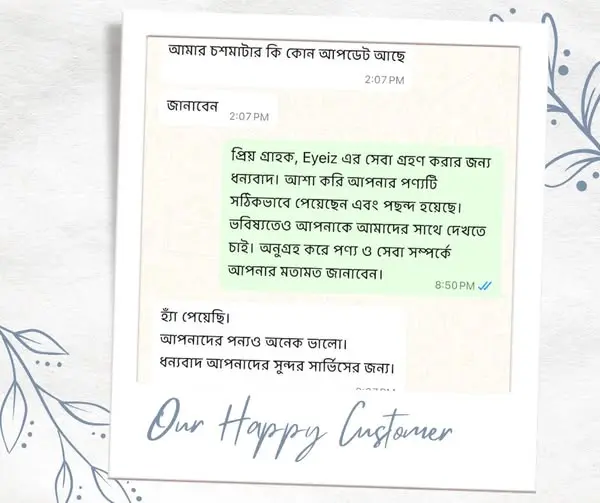 আমার চশমাটার কি কোন আপডেট আছে
2:07 PM
জানাবেন
2:07 PM
প্রিয় গ্রাহক, Eyeiz এর সেবা গ্রহণ করার জন্য
ধন্যবাদ। আশা করি আপনার পণ্যটি
সঠিকভাবে পেয়েছেন এবং পছন্দ হয়েছে।
ভবিষ্যতেও আপনাকে আমাদের সাথে দেখতে
চাই। অনুগ্রহ করে পণ্য ও সেবা সম্পর্কে
আপনার মতামত জানাবেন।
8:50 PM
হ্যাঁ পেয়েছি।
আপনাদের পন্যও অনেক ভালো।
ধন্যবাদ আপনাদের সুন্দর সার্ভিসের জন্য।
Our Happy Customer